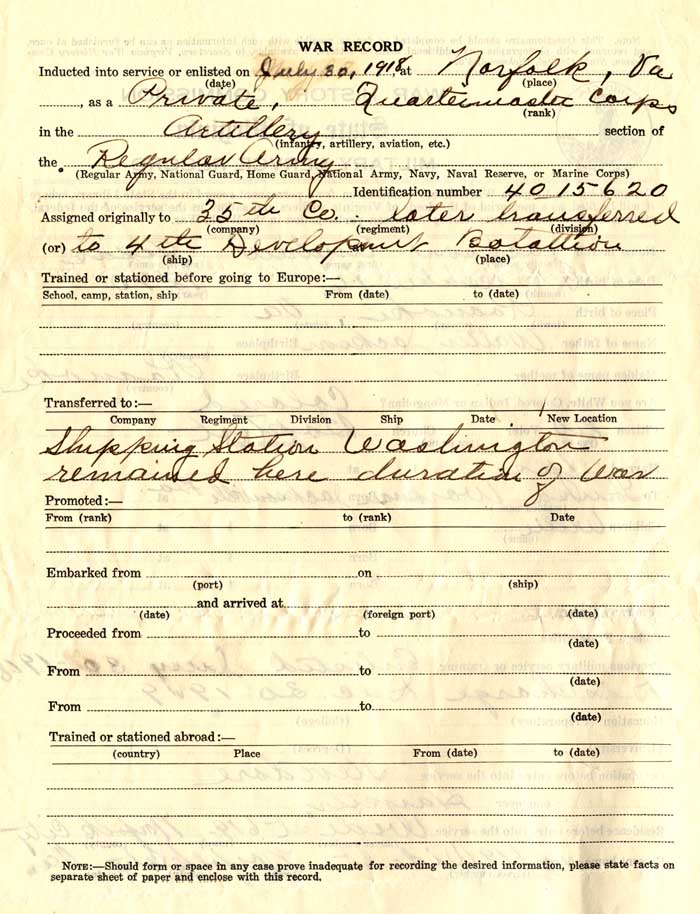 WAR RECORD
Inducted into service or enlisted on July 30, 1918 at Norfolk, Va
(date) (place)
, as a Private, Quartermaster Corps
(rank)
in the Artillery section of
(infantry, artillery, aviation, etc.)
the Regular Army
(Regular Army, National Guard, Home Guard, National Army, Navy, Naval Reserve, or Marine Corps)
Identification number 4015620
Assigned originally to 35th Co. later transferred
(company) (regiment) (division)
(or) to 4th Batallion
(ship) (place)
Trained or stationed before going to Europe:—
School, camp, station, ship From (date) to (date)
Transferred to:—
Company Regiment Division Ship Date New Location
Shipping Station Washington
remained here duration of War
Promoted:—
From (rank) to (rank) Date
Embarked from on
(port) (ship)
and arrived at
(date) (foreign port) (date)
Proceeded from to
(date)
From to
(date)
From to
(date)
Trained or stationed abroad:—
(country) Place From (date) to (date)
NOTE:—Should form or space in any case prove inadequate for recording the desired information, please state facts on
separate sheet of paper and enclose with this record.